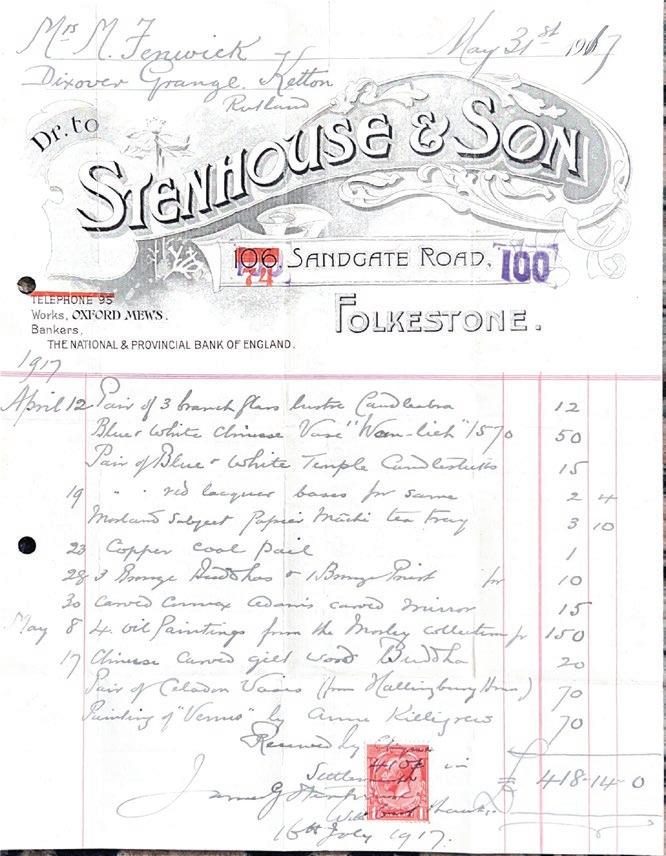 Mrs M. Fenwick
May 31st 1917
Dixover Grange. Ketton
Rutland
Dr. to
STENHOUSE & SON
106, SANDGATE ROAD, 100
74
FOLKESTONE.
TELEPHONE 95
Works, OXFORD MEWS.
Bankers,
THE NATIONAL & PROVINCIAL BANK OF ENGLAND.
1917
April 12 Pair of 3 branch glass lustre Candelabra 12
Blue & White Chinese Vase "Wan-lieh" 1570 50
Pair of Blue & White Temple Candlesticks 15
19 " " red lacquer bases for same 2 4
Morland Subject Papier Machi tea tray 3 10
23 Copper coal pail 1
28 3 Bronze Buddhas & 1 Bronze Priest for 10
30 carved convex Adams carved mirror 15
May 8 4 oil Paintings from the Morley collection for 150
17 Chinese Carved gilt wood Buddha 20
Pair of Celadon Vases (from Hallingbury House) 70
Painting of "Venus" by Anne Killigrew 70
Received by Cheque
£418-14-0
in
Settlement
James G Stenhouse
With Thanks
16th July 1917.